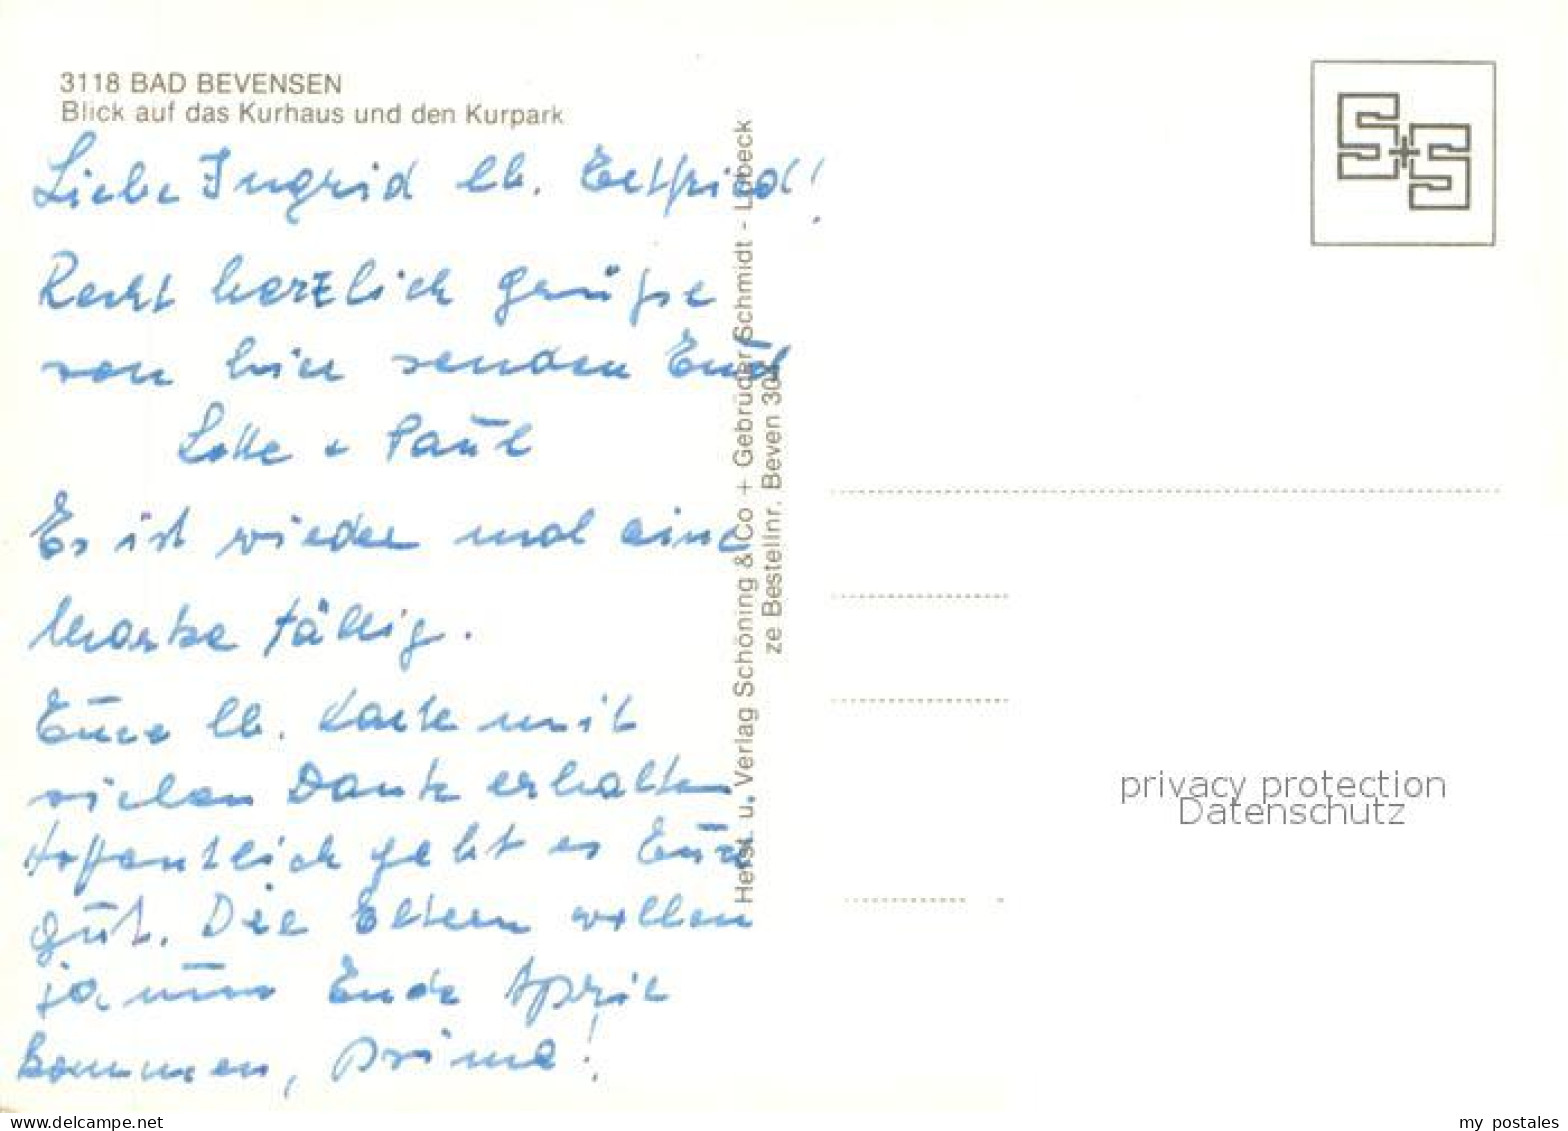 3118 BAD BEVENSEN
Blick auf das Kurhaus und den Kurpark
Liebe Ingrid lb.
Recht herzlich Grüße
von hier senden Euch
Lotte + Paul
Es ist wieder mal eine
Marke fällig.
Eure lb. Karte mit
vielen Dank erhalten
Hoffentlich geht es Euch
gut. Die Eltern wollen
ja nun Ende April
kommen, prima!
Herst. u. Verlag Schöning & Co + Gebrüder Schmidt - Lübeck
ze Bestellnr. Beven 30
S+S
privacy protection
Datenschutz
www.delcampe.net
my_postales